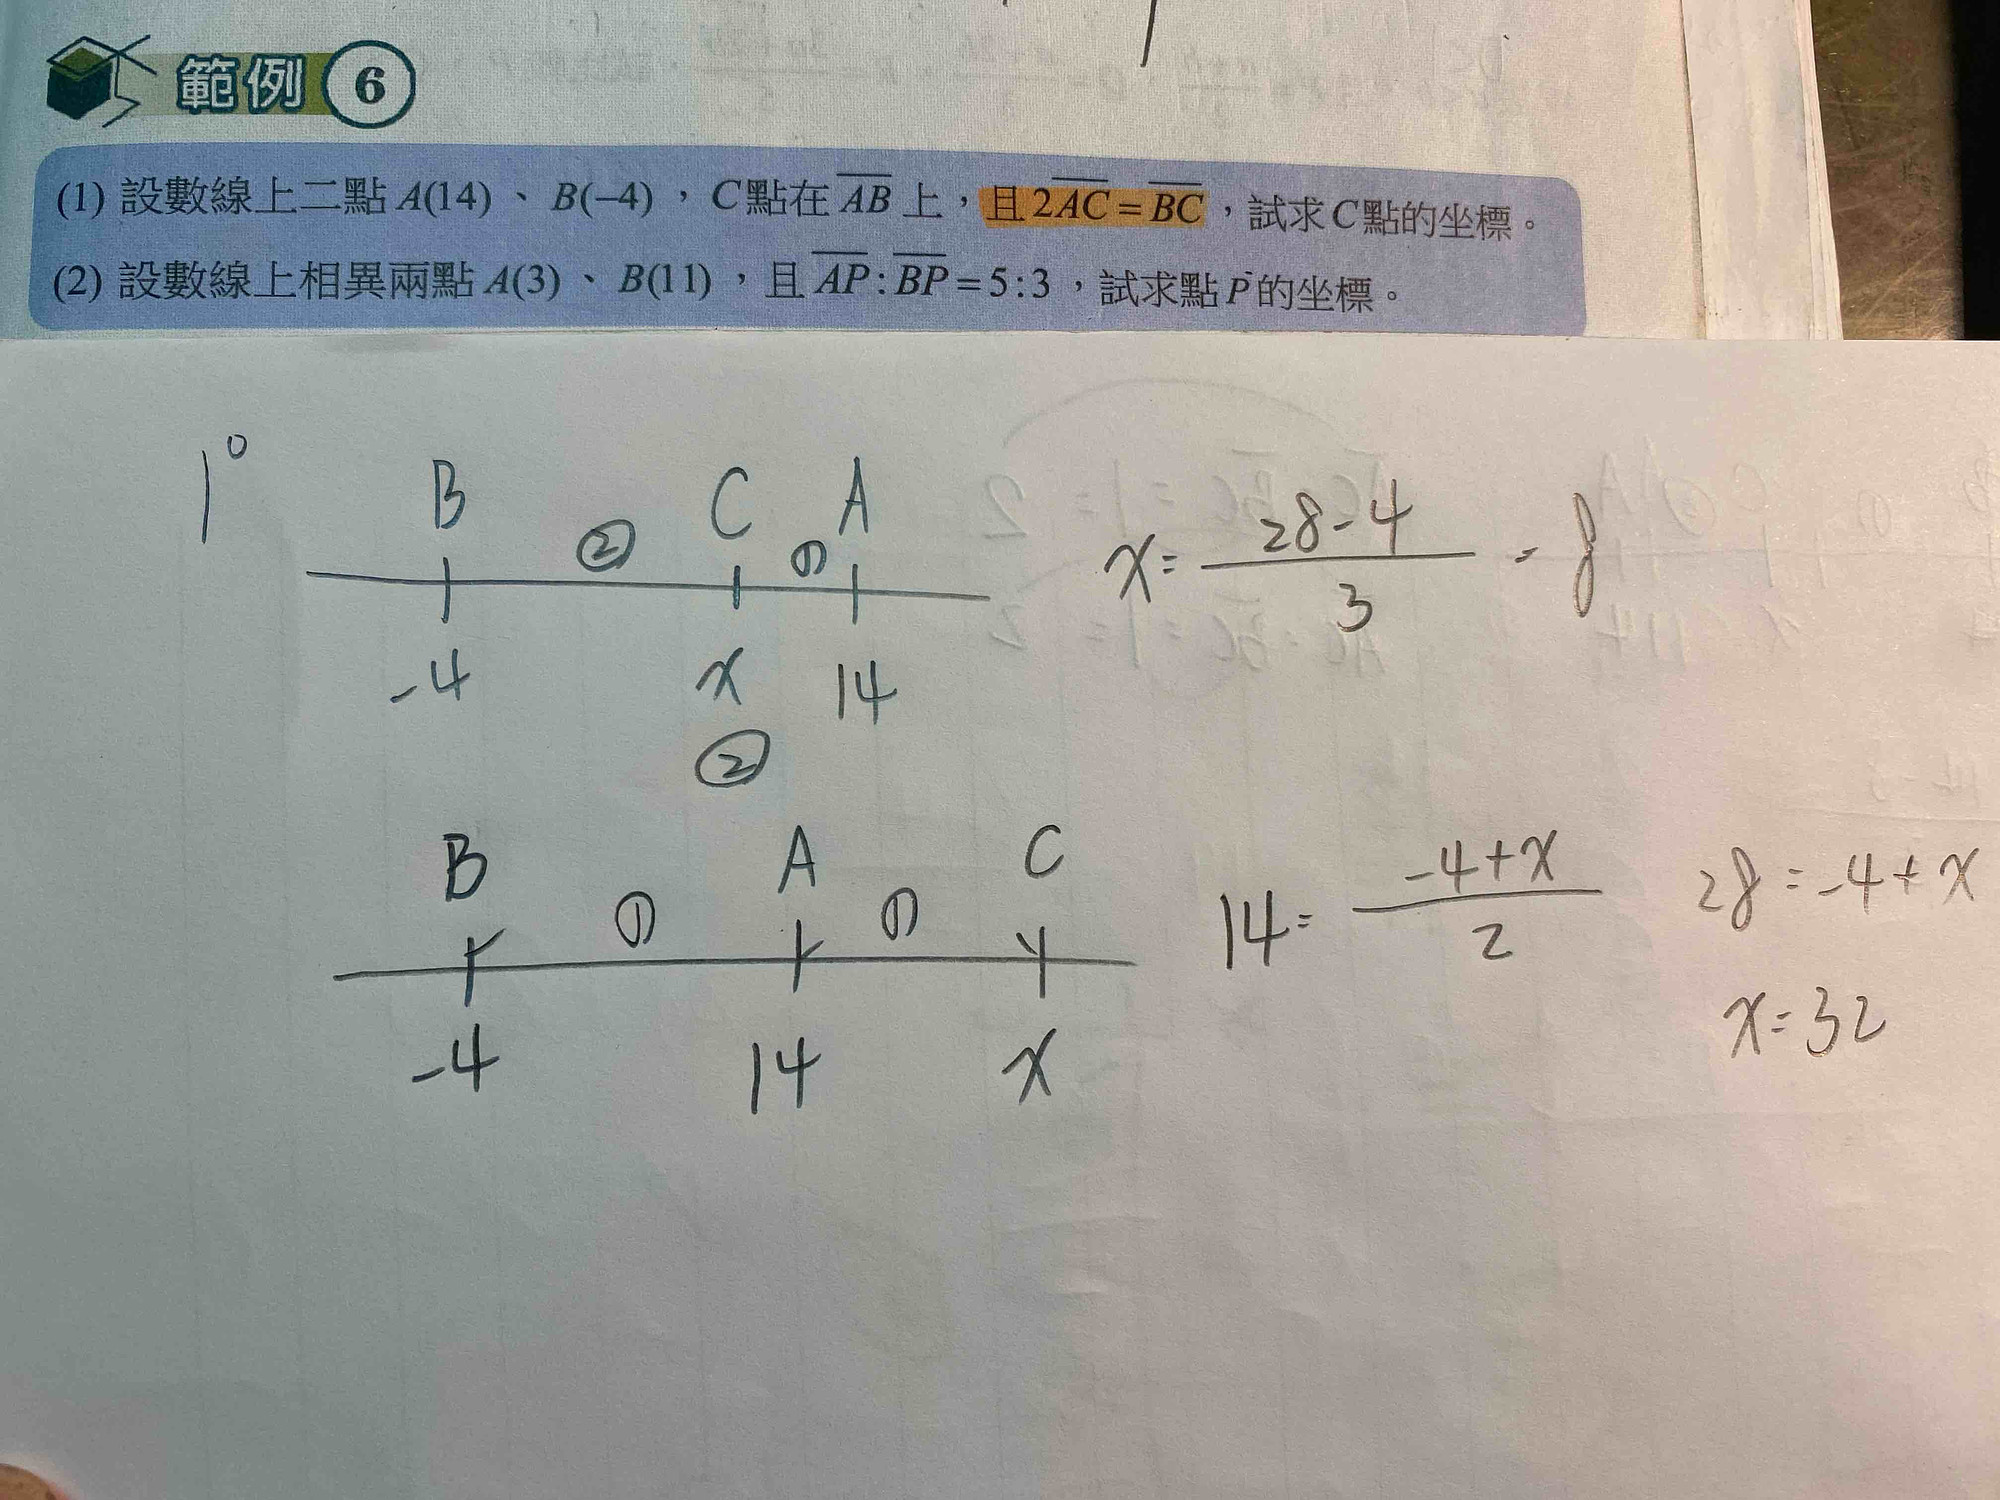 範例 6
(1) 設數線上二點 A(14)、B(−4),C點在 AB 上,且 2AC = BC,試求C點的坐標。
(2) 設數線上相異兩點 A(3)、B(11),且 AP : BP = 5 : 3,試求點 P 的坐標。
1°
B ② C ① A
-4 x 14
x = (28-4)/3 = 8
②
B ① A ① C
-4 14 x
14 = (-4+x)/2 28 = -4 + x
x = 32